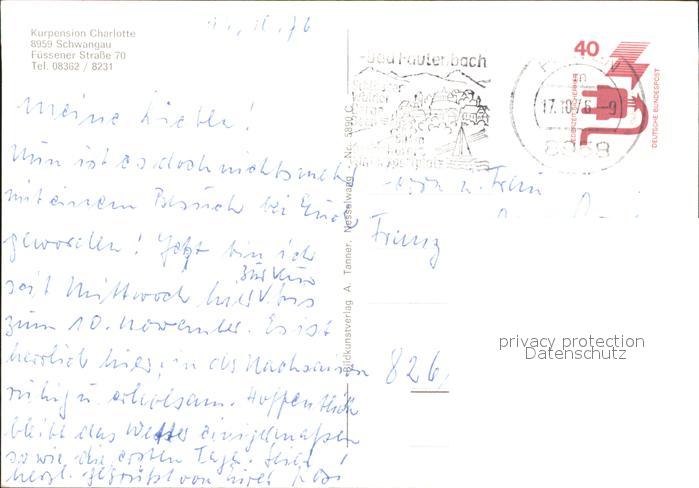 Kurpension Charlotte
8959 Schwangau
Füssener Straße 70
Tel. 08362 / 8231
Meine Lieben!
Nun ist es doch nichts mehr
mit einem Besuch bei Euch
geworden! Jetzt bin ich
seit Mittwoch hier zur Kur bis
zum 10. November. Es ist
herrlich hier, in der Nachsaison
ruhig u. erholsam. Hoffentlich
bleibt das Wetter einigermaßen
so wie die ersten Tage. Seid
herzl. gegrüßt von
Bildkunstverlag A. Tanner, Nesselwang - Nr. 5890 C
17.10.76 - 9
8958
40
DEUTSCHE BUNDESPOST
u. Frau
Franz
826
privacy protection
Datenschutz